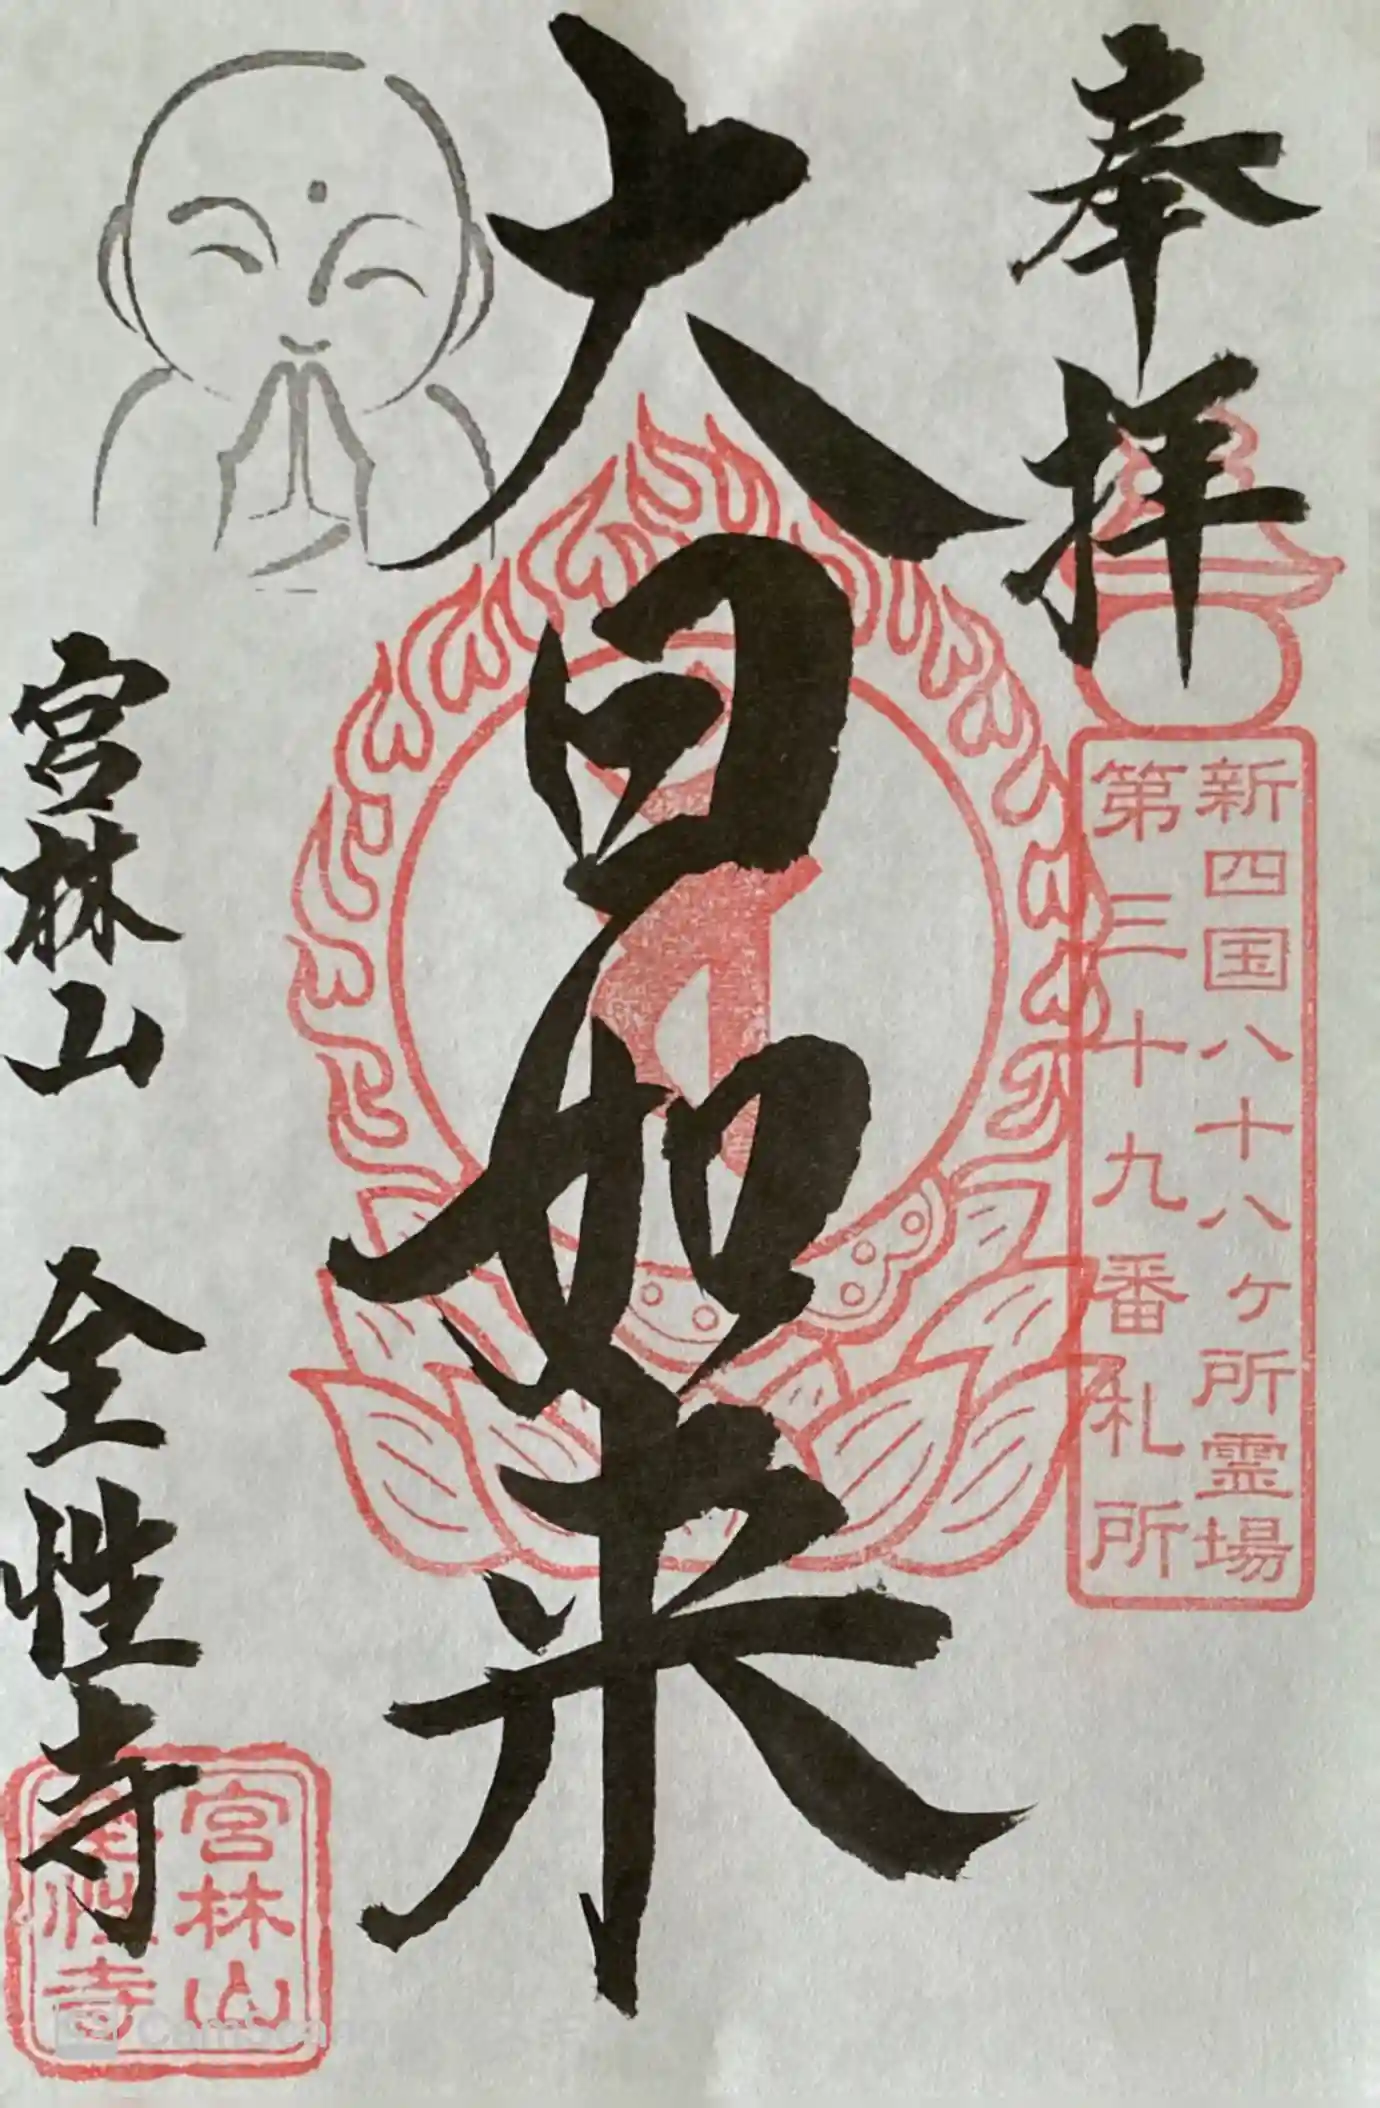 奉拝
新四国八十八ヶ所霊場
第三十九番札所
大日如来
宮林山 全性寺
宮林山
全性寺